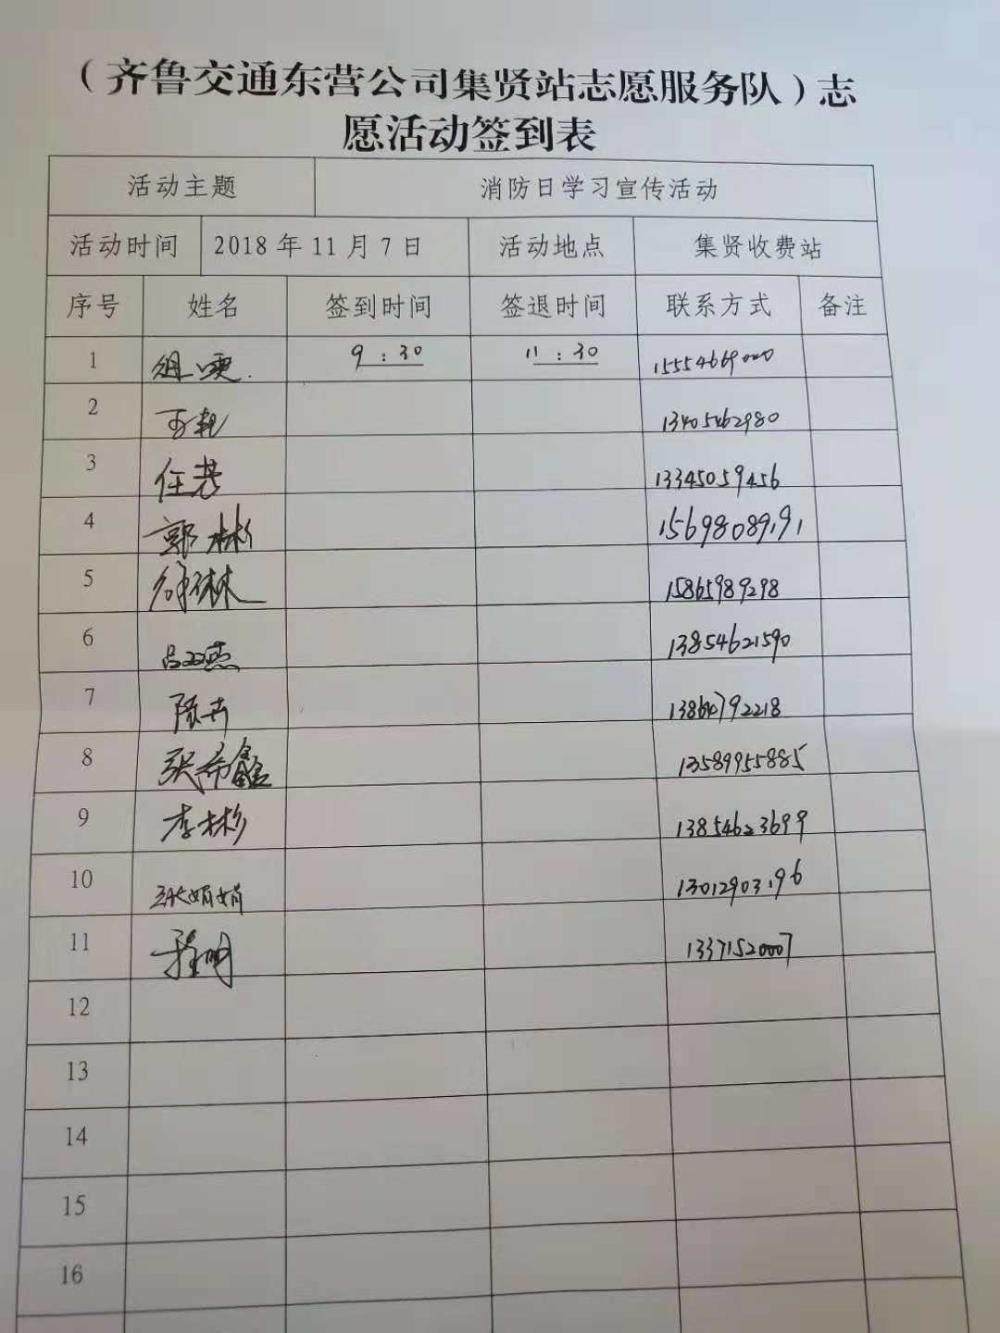 （齐鲁交通东营公司集贤站志愿服务队）志
愿活动签到表
活动主题 消防日学习宣传活动
活动时间 2018 年 11 月 7 日 活动地点 集贤收费站
序号 姓名 签到时间 签退时间 联系方式 备注
1 9:30 11:30 15554669000
2 13405462980
3 任芸 13345059456
4 郭彬彬 15698089191
5 徐琳琳 15865989298
6 吕双燕 13854621590
7 陈卉 13864792218
8 张希鑫 13589955885
9 李彬 13854623699
10 张娟娟 13012903196
11 程明 13371520007
12
13
14
15
16